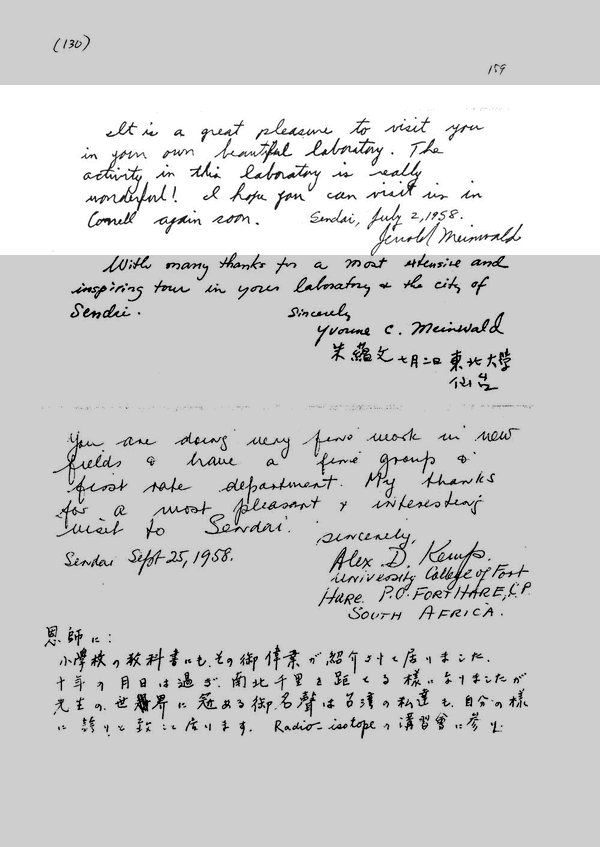 (130)
159
It is a great pleasure to visit you
in your own beautiful laboratory. The
activity in this laboratory is really
wonderful! I hope you can visit us in
Cornell again soon. Sendai, July 2, 1958.
Jerrold Meinwald
With many thanks for a most extensive and
inspiring tour in your laboratory & the city of
Sendai. Sincerely
Yvonne C. Meinwald
朱蘊文 七月二日 東北大学
仙台
You are doing very fine work in new
fields & have a fine group &
first rate department. My thanks
for a most pleasant & interesting
visit to Sendai. sincerely,
Sendai Sept 25, 1958. Alex. D. Kemp.
University College of Fort
Hare. P.O. FORT HARE, C.P.
SOUTH AFRICA.
恩師に:
小學校の教科書にも、その御偉業が紹介されて居りました.
十年の月日は過ぎ、南北千里を距てる様になりましたが
先生の世界に冠める御名聲は台湾の私達も、自分の様
に誇りと致して居ります. Radio-isotopeの講習會に参り